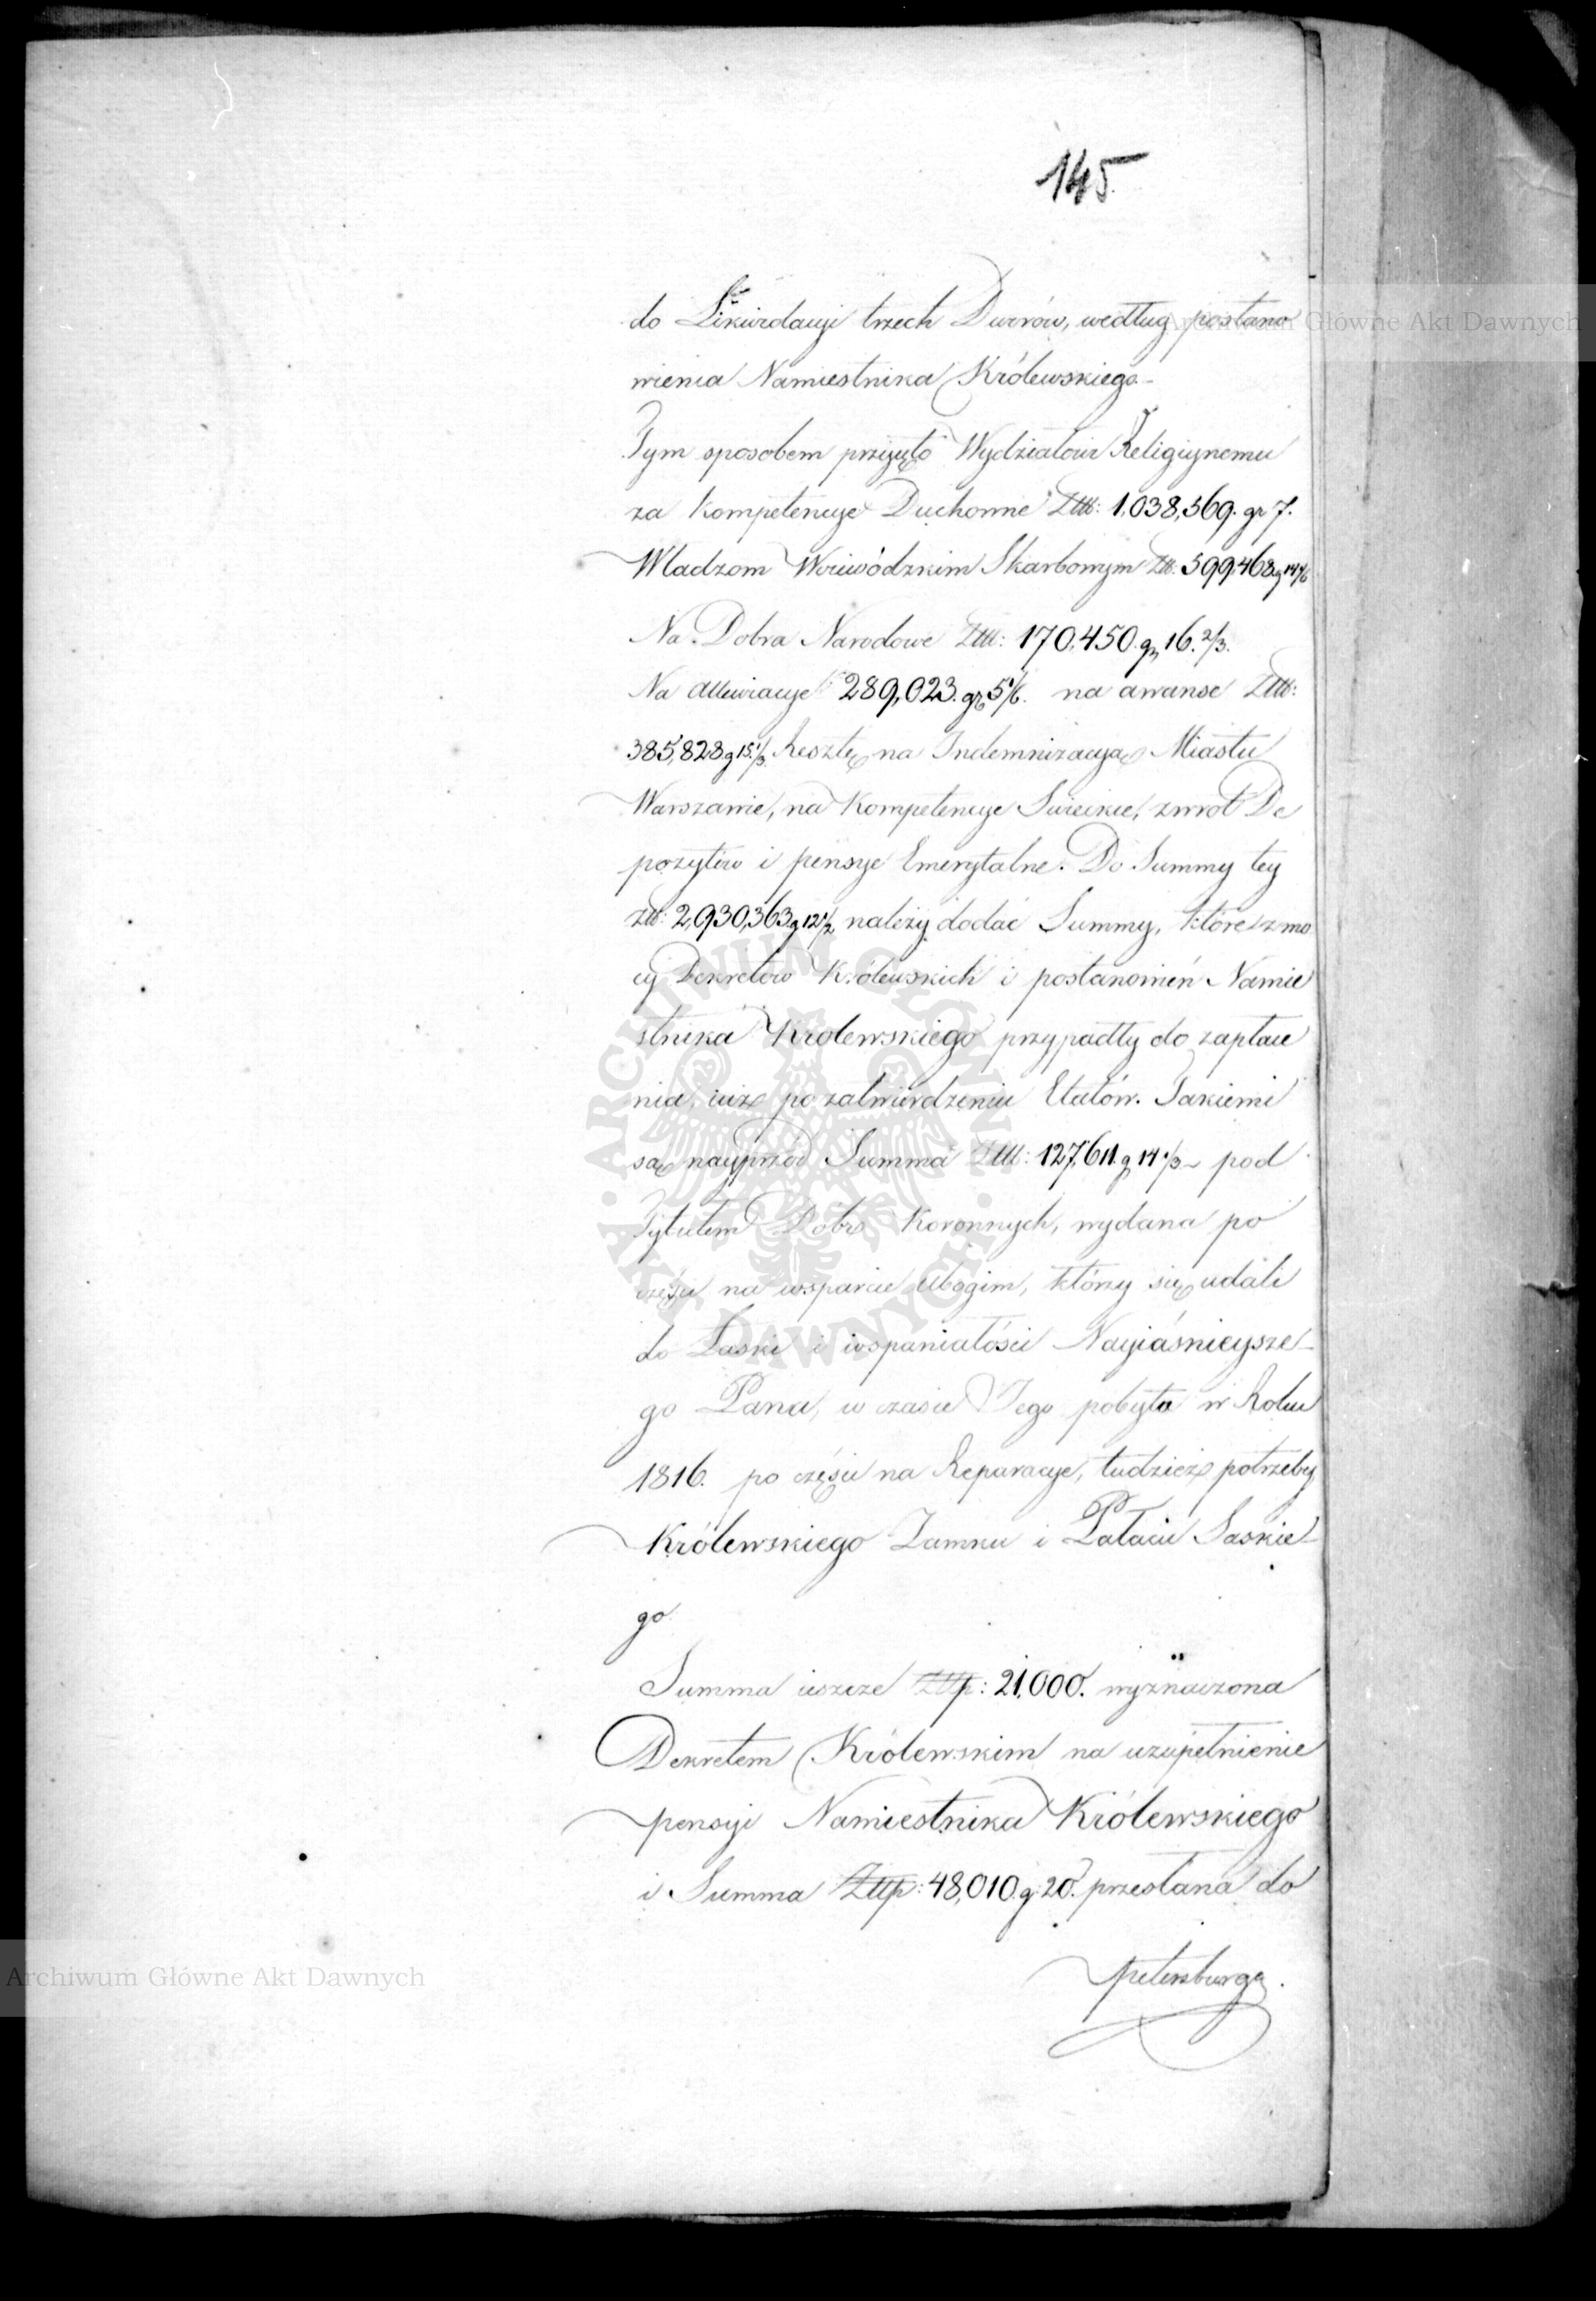 145.
do Likwidacyi trzech Dworów, według postano
wienia Namiestnika Królewskiego.
Tym sposobem przyięto Wydziałowi Religiynemu
za Kompetencye Duchowne Złtt: 1,038,569. gr 7.
Władzom Woiewódzkim Skarbowym Złt: 599,468 g 14
Na Dobra Narodowe Złtt: 170,450. gr 16. 2/3.
Na allewiacye 289,023. gr 5 1/6. na awanse Złtt:
385,828 g 15 1/3. Resztę na Indemnizacyą Miastu
Warszawie, na Kompetencye Swieckie, zwrot De
pozytów i pensye Emerytalne. Do Summy tey
złt: 2,930,363 g 12 1/2 należy dodać Summy, które z mo
cy Dekretów Królewskich i postanowień Namie
stnika Królewskiego przypadły do zapłace
nia, iuż po zatwierdzeniu Etatów. Takiemi
są nayprzód Summa Złtt: 127,611 g 14 1/3 pod
Tytułem Dobr Koronnych, wydana po
części na wsparcie ubogim, którzy się udali
do Łaski i wspaniałości Nayiaśnieysze-
go Pana, w czasie Jego pobytu w Roku
1816. po części na Reparacye, tudzież potrzeby
Królewskiego Zamku i Pałacu Saskie-
go
Summa ieszcze Złtp: 21,000. wyznaczona
Dekretem Królewskim na uzupełnienie
pensyi Namiestnika Królewskiego
i Summa Złtp: 48,010. g 20. przesłana do
Petersburga.
Archiwum Główne Akt Dawnych
Archiwum Główne Akt Dawnych
ARCHIWUM GŁÓWNE AKT DAWNYCH